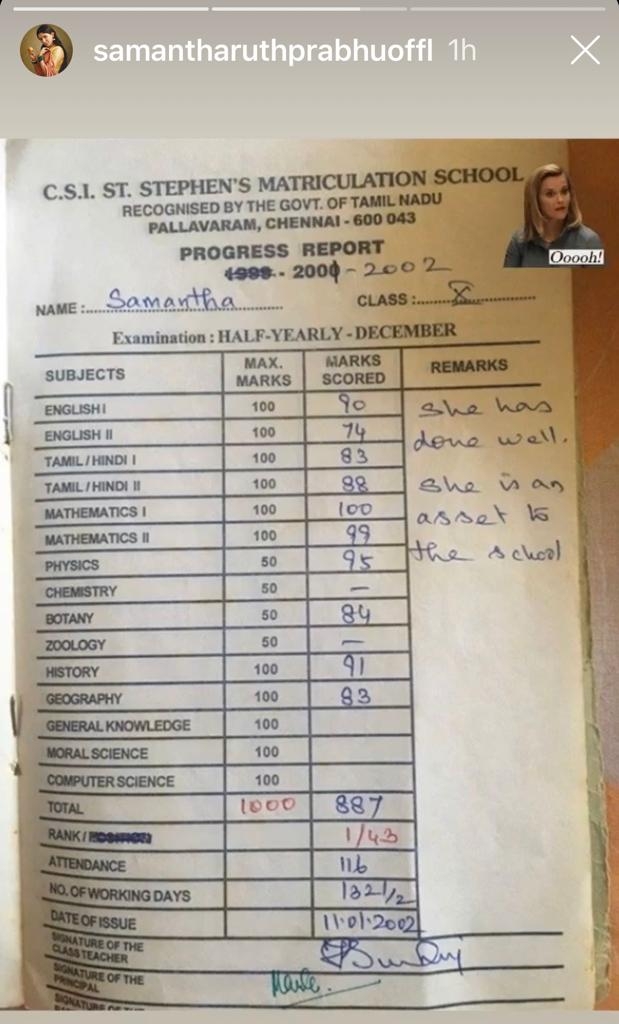 samantharuthprabhuoffl 1h
C.S.I. ST. STEPHEN'S MATRICULATION SCHOOL
RECOGNISED BY THE GOVT. OF TAMIL NADU
PALLAVARAM, CHENNAI - 600 043
Ooooh!
PROGRESS REPORT
1999 - 2000 - 2002
NAME :..... Samantha ..... CLASS :..... X .....
Examination : HALF-YEARLY - DECEMBER
SUBJECTS MAX. MARKS MARKS SCORED REMARKS
ENGLISH I 100 90 She has
ENGLISH II 100 74 done well.
TAMIL / HINDI I 100 83
TAMIL / HINDI II 100 88 She is an
MATHEMATICS I 100 100 asset to
MATHEMATICS II 100 99 the school
PHYSICS 50 95
CHEMISTRY 50 —
BOTANY 50 84
ZOOLOGY 50 —
HISTORY 100 91
GEOGRAPHY 100 83
GENERAL KNOWLEDGE 100
MORAL SCIENCE 100
COMPUTER SCIENCE 100
TOTAL 1000 887
RANK / 1/43
ATTENDANCE 116
NO. OF WORKING DAYS 132 1/2
DATE OF ISSUE 11.01.2002
SIGNATURE OF THE CLASS TEACHER
SIGNATURE OF THE PRINCIPAL
SIGNATURE OF THE